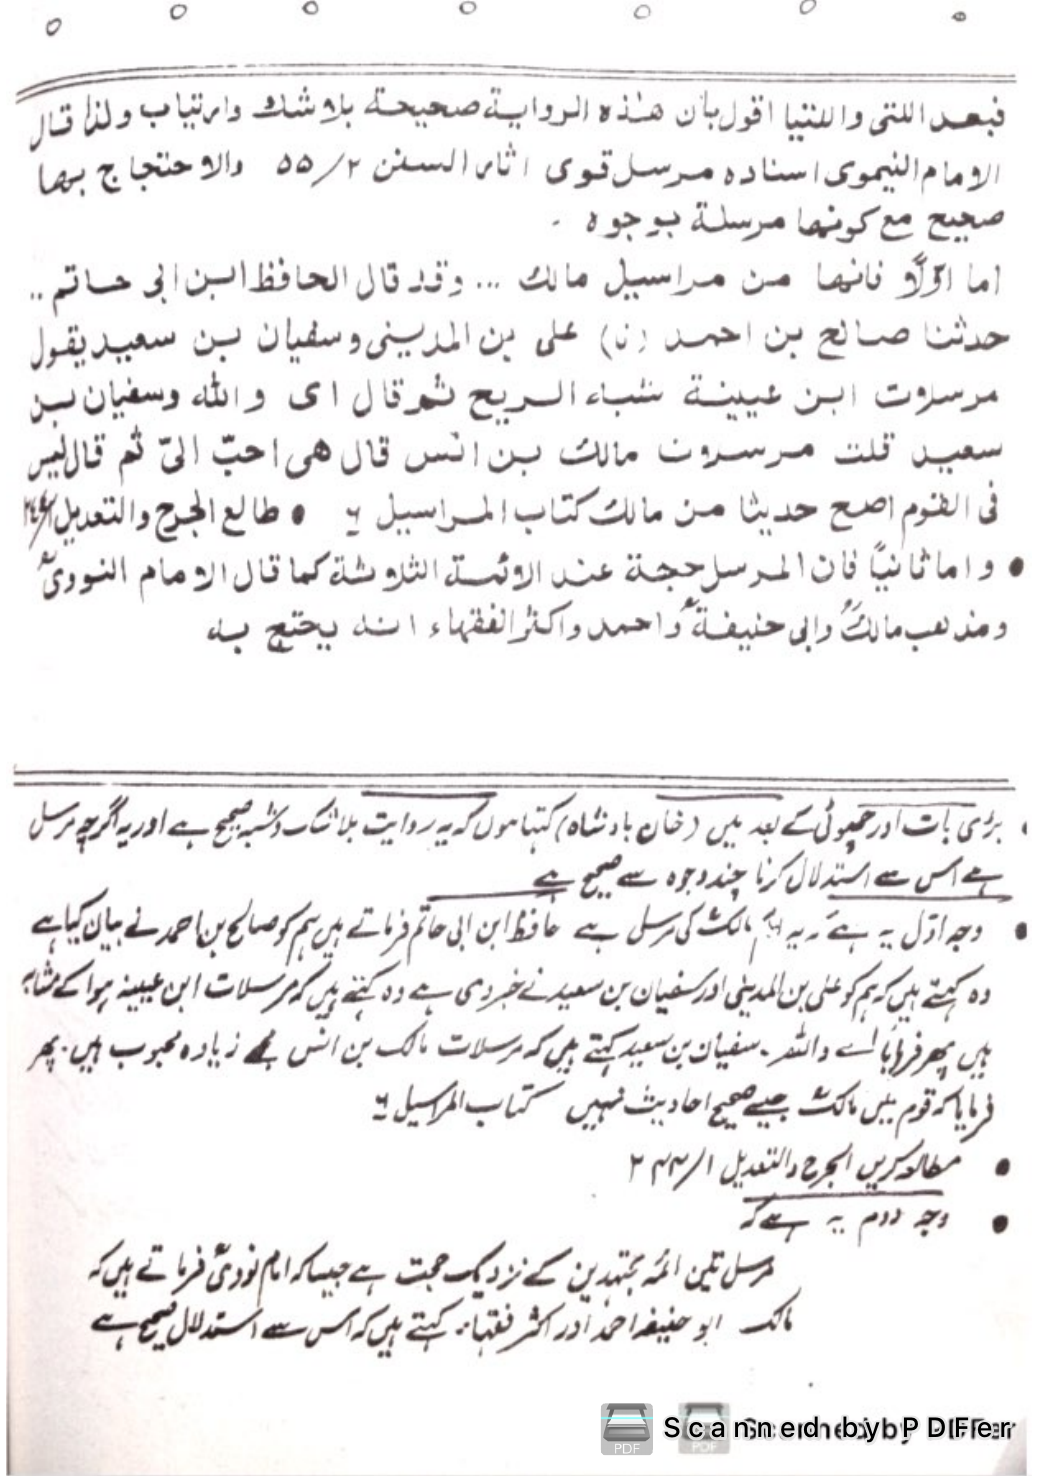 فبعد اللتی واللتیا اقول بأن هذه الروایة صحیحة بلا شك وارتیاب ولذا قال
الامام النیموی اسناده مرسل قوی اثار السنن ۵۵/۲ والاحتجاج بها
صحیح مع کونها مرسلة بوجوه ۔
اما اوّلاً فانها من مراسیل مالك ... وقد قال الحافظ ابن ابی حاتم ..
حدثنا صالح بن احمد (نا) علی بن المدینی وسفیان بن سعید یقول
مرسلات ابن عیینة شباء الریح ثم قال ای والله وسفیان بن
سعید قلت مرسلات مالك بن انس قال هی احبّ الیّ ثم قال لیس
فی القوم اصح حدیثا من مالك کتاب المراسیل ۶ • طالع الجرح والتعدیل
• واما ثانیاً فان المرسل حجة عند الائمة الثلاثة کما قال الامام النووی
ومذهب مالك وابی حنیفة واحمد واکثر الفقهاء انه یحتج به
بڑی بات اور چھوٹی کے بعد میں (خان بادشاہ) کہتا ہوں کہ یہ روایت بلا شک وشبہ صحیح ہے اور یہ اگرچہ مرسل
ہے اس سے استدلال کرنا چند وجوہ سے صحیح ہے
• وجہ اوّل یہ ہے کہ یہ مالکؒ کی مرسل ہے حافظ ابن ابی حاتم فرماتے ہیں ہم کو صالح بن احمد نے بیان کیا ہے
وہ کہتے ہیں کہ ہم کو علی بن المدینی اور سفیان بن سعید نے خبر دی ہے وہ کہتے ہیں کہ مرسلات ابن عیینہ ہوا کے مشابہ
ہیں پھر فرمایا اے واللہ ۔ سفیان بن سعید کہتے ہیں کہ مرسلات مالک بن انس مجھے زیادہ محبوب ہیں ۔ پھر
فرمایا کہ قوم میں مالکؒ جیسے صحیح احادیث نہیں کتاب المراسیل ۶
• مطالعہ کریں الجرح والتعدیل ۲۴۴/۱
• وجہ دوم یہ ہے کہ
مرسل تین ائمہ مجتہدین کے نزدیک حجت ہے جیسا کہ امام نوویؒ فرماتے ہیں کہ
مالک ابو حنیفہ احمد اور اکثر فقہاء کہتے ہیں کہ اس سے استدلال صحیح ہے
Scanned by PDFer